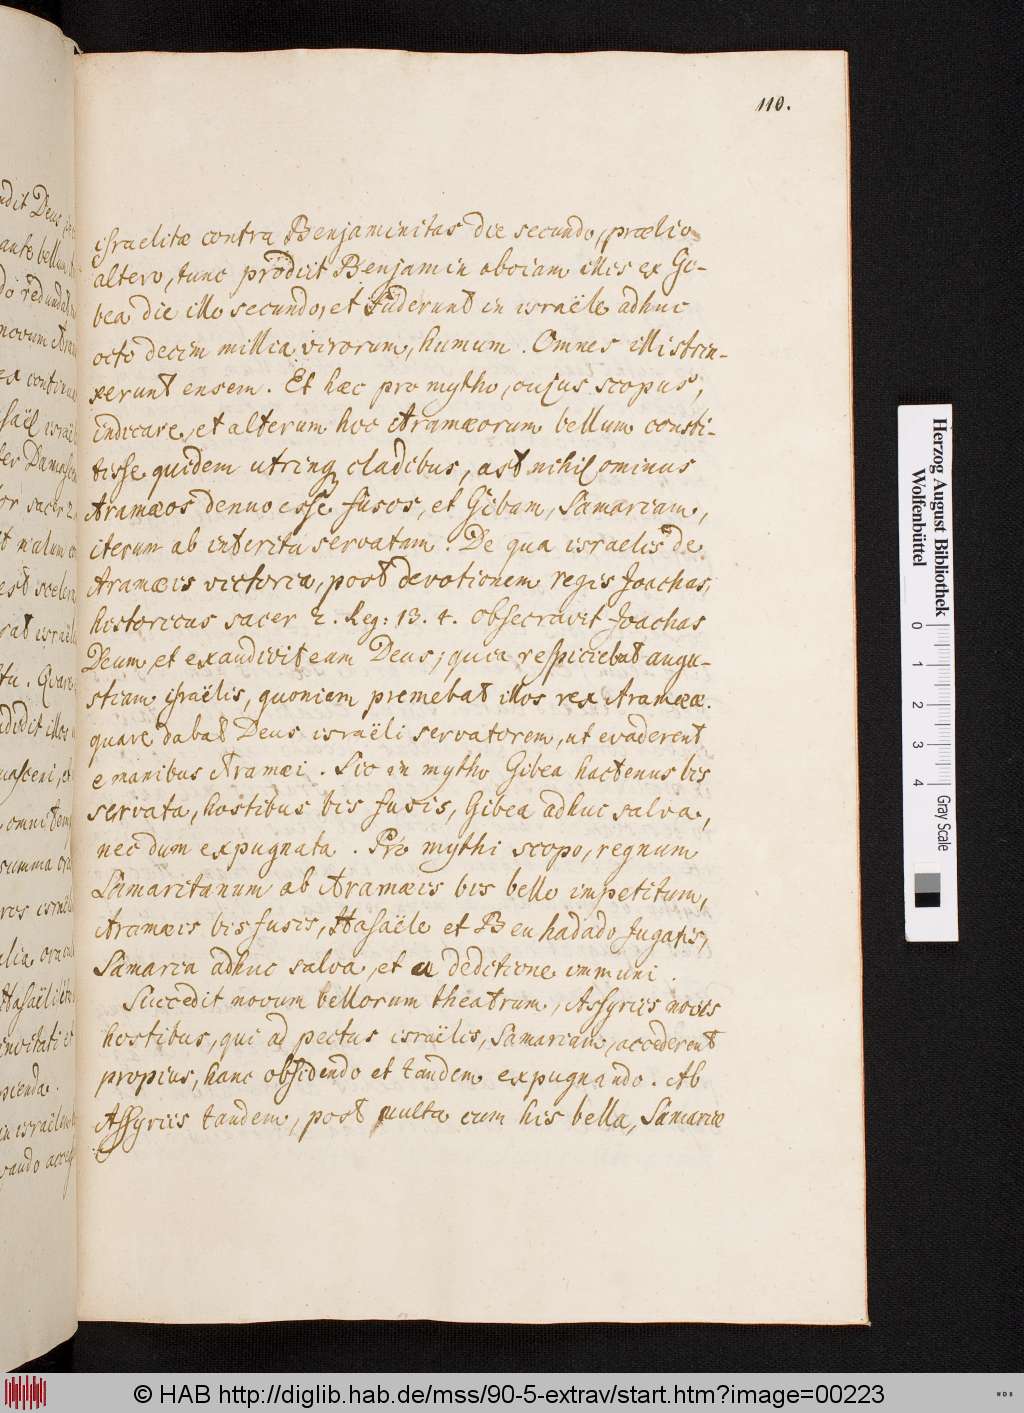 110.
israelitæ contra Benjaminitas die secundo, prœlio
altero, tunc prodiit Benjamin obviam illis ex Gi-
bea die illo secundo, et fuderunt in israële adhuc
octo decim millia virorum, humum. Omnes illi strin-
xerunt ensem. Et hæc pro mytho, cujus scopus,
indicare, et alterum hoc Aramæorum bellum consti-
tisse quidem utrinq cladibus, ast nihilominus
Aramæos denuo esse fusos, et Gibam, Samariam,
iterum ab interitu servatam. De qua israelis de
Aramæis victoria, post devotionem regis Joachas,
historicus sacer 2. Reg: 13. 4. obsecravit Joachas
Deum, et exaudivit eum Deus; quia respiciebat angu-
stiam israëlis, quoniam premebat illos rex Aramææ.
quare dabat Deus israëli servatorem, ut evaderent
e manibus Aramæi. Sic in mytho Gibea hactenus bis
servata, hostibus bis fusis, Gibea adhuc salva,
nec dum expugnata. Pro mythi scopo, regnum
Samaritanum ab Aramæis bis bello impetitum,
Aramæis bis fusis, Hasaële et Benhadado fugatis,
Samaria adhuc salva, et a deditione immuni.
Succedit novum bellorum theatrum, Assyriis novis
hostibus, qui ad pectus israëlis, Samariam, accederent
propius, hanc obsidendo et tandem expugnando. Ab
Assyriis tandem, post multa cum his bella, Samariæ
Herzog August Bibliothek
Wolfenbüttel
0 1 2 3 4 Gray Scale
© HAB http://diglib.hab.de/mss/90-5-extrav/start.htm?image=00223